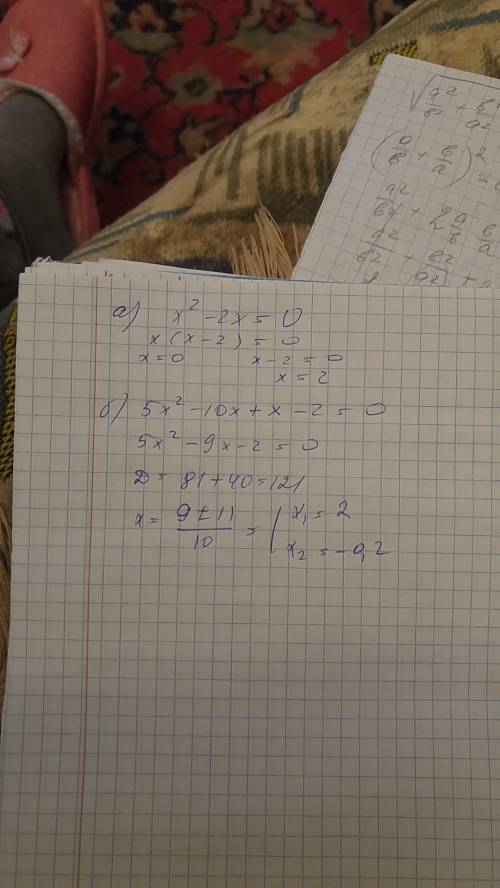 √a²/b² + b/a²
(a/b + b/a)² =
a²/b² + 2 a/b b/a
a²/b² + b²/a² +
а) x² - 2x = 0
x (x - 2) = 0
x = 0 x - 2 = 0
x = 2
б) 5x² - 10x + x - 2 = 0
5x² - 9x - 2 = 0
D = 81 + 40 = 121
x = 9 ± 11 / 10 = x₁ = 2
x₂ = -0,2